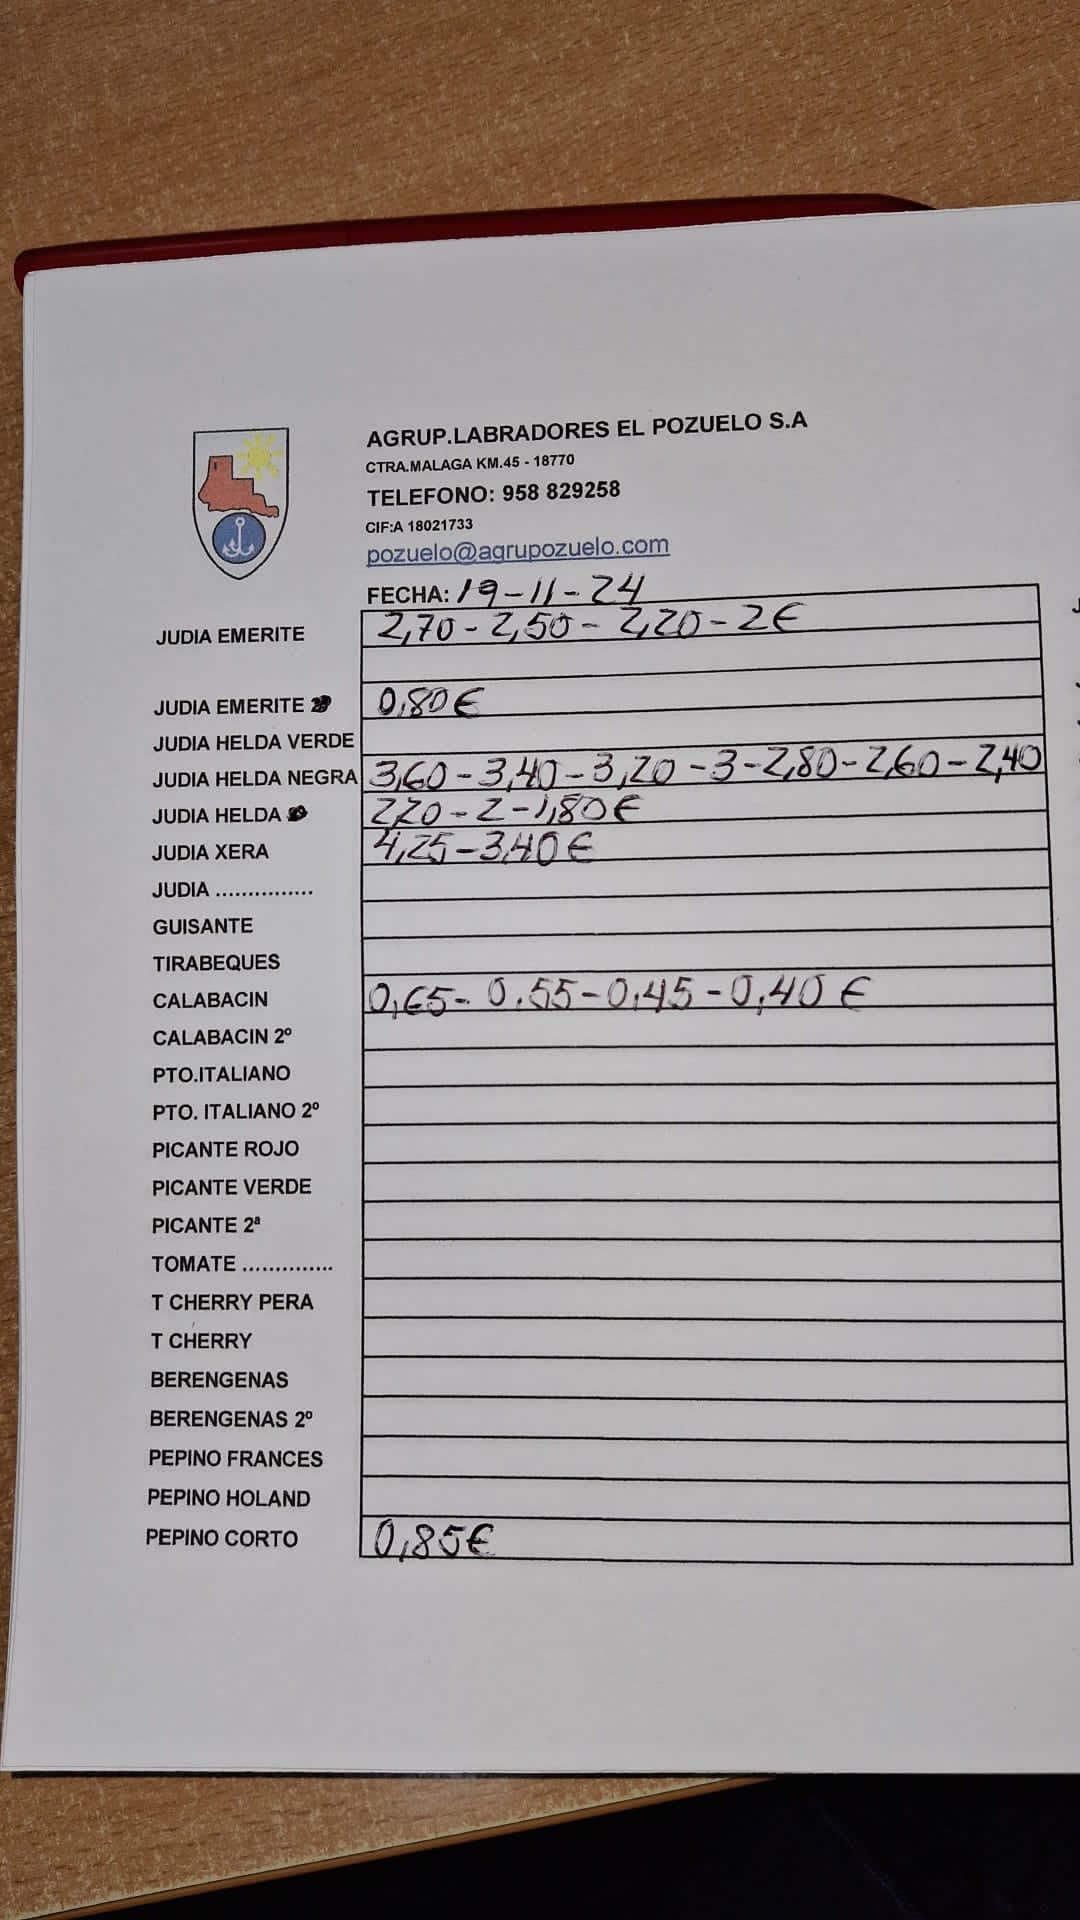 AGRUP.LABRADORES EL POZUELO S.A
CTRA.MALAGA KM.45 - 18770
TELEFONO: 958 829258
CIF:A 18021733
pozuelo@agrupozuelo.com
FECHA: 19-11-24
JUDIA EMERITE 2,70 - 2,50 - 2,20 - 2€
JUDIA EMERITE 0,80€
JUDIA HELDA VERDE
JUDIA HELDA NEGRA 3,60 - 3,40 - 3,20 - 3 - 2,80 - 2,60 - 2,40
JUDIA HELDA 2,20 - 2 - 1,80€
JUDIA XERA 4,25 - 3,40€
JUDIA ...............
GUISANTE
TIRABEQUES
CALABACIN 0,65 - 0.55 - 0,45 - 0,40 €
CALABACIN 2º
PTO.ITALIANO
PTO. ITALIANO 2º
PICANTE ROJO
PICANTE VERDE
PICANTE 2ª
TOMATE ..............
T CHERRY PERA
T CHERRY
BERENGENAS
BERENGENAS 2º
PEPINO FRANCES
PEPINO HOLAND
PEPINO CORTO 0,85€